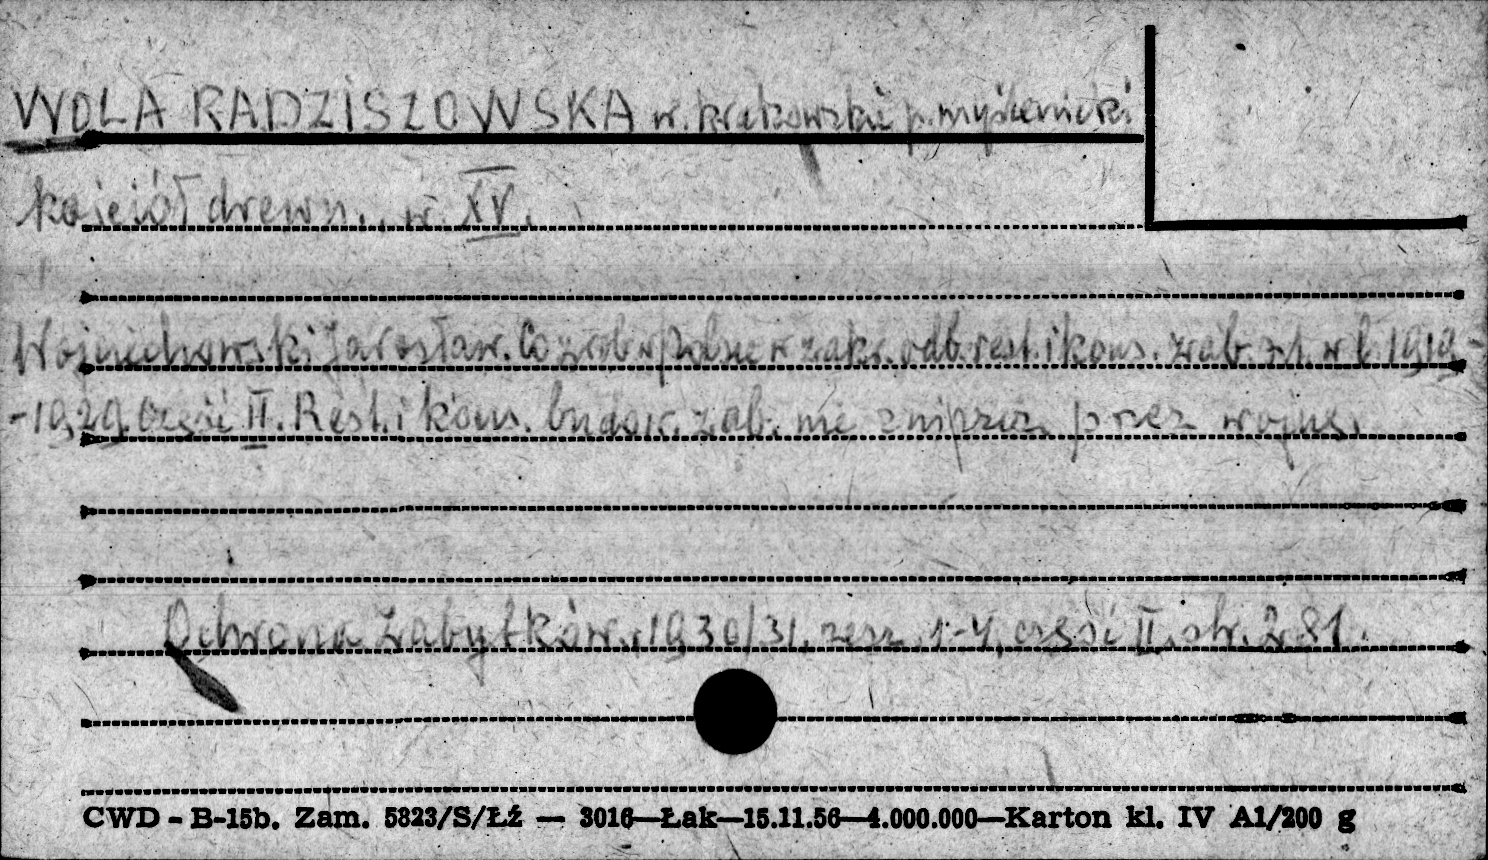 WOLA RADZISZOWSKA w. krakowskie p. myślenicki
kościół drewn., w. XV.
Wojciechowski Jarosław. Co zrob. w Polsce w zakr. odb. rest. i kons. zab. szt. w l. 1919-
-1929. Część II. Rest. i kons. budow. zab. nie zniszcz. przez wojnę.
Ochrona Zabytków, 1930/31, zesz. 1-4, część II, str. 281.
CWD - B-15b. Zam. 5823/S/Łź — 3016—Łak—15.11.56—4.000.000—Karton kl. IV A1/200 g